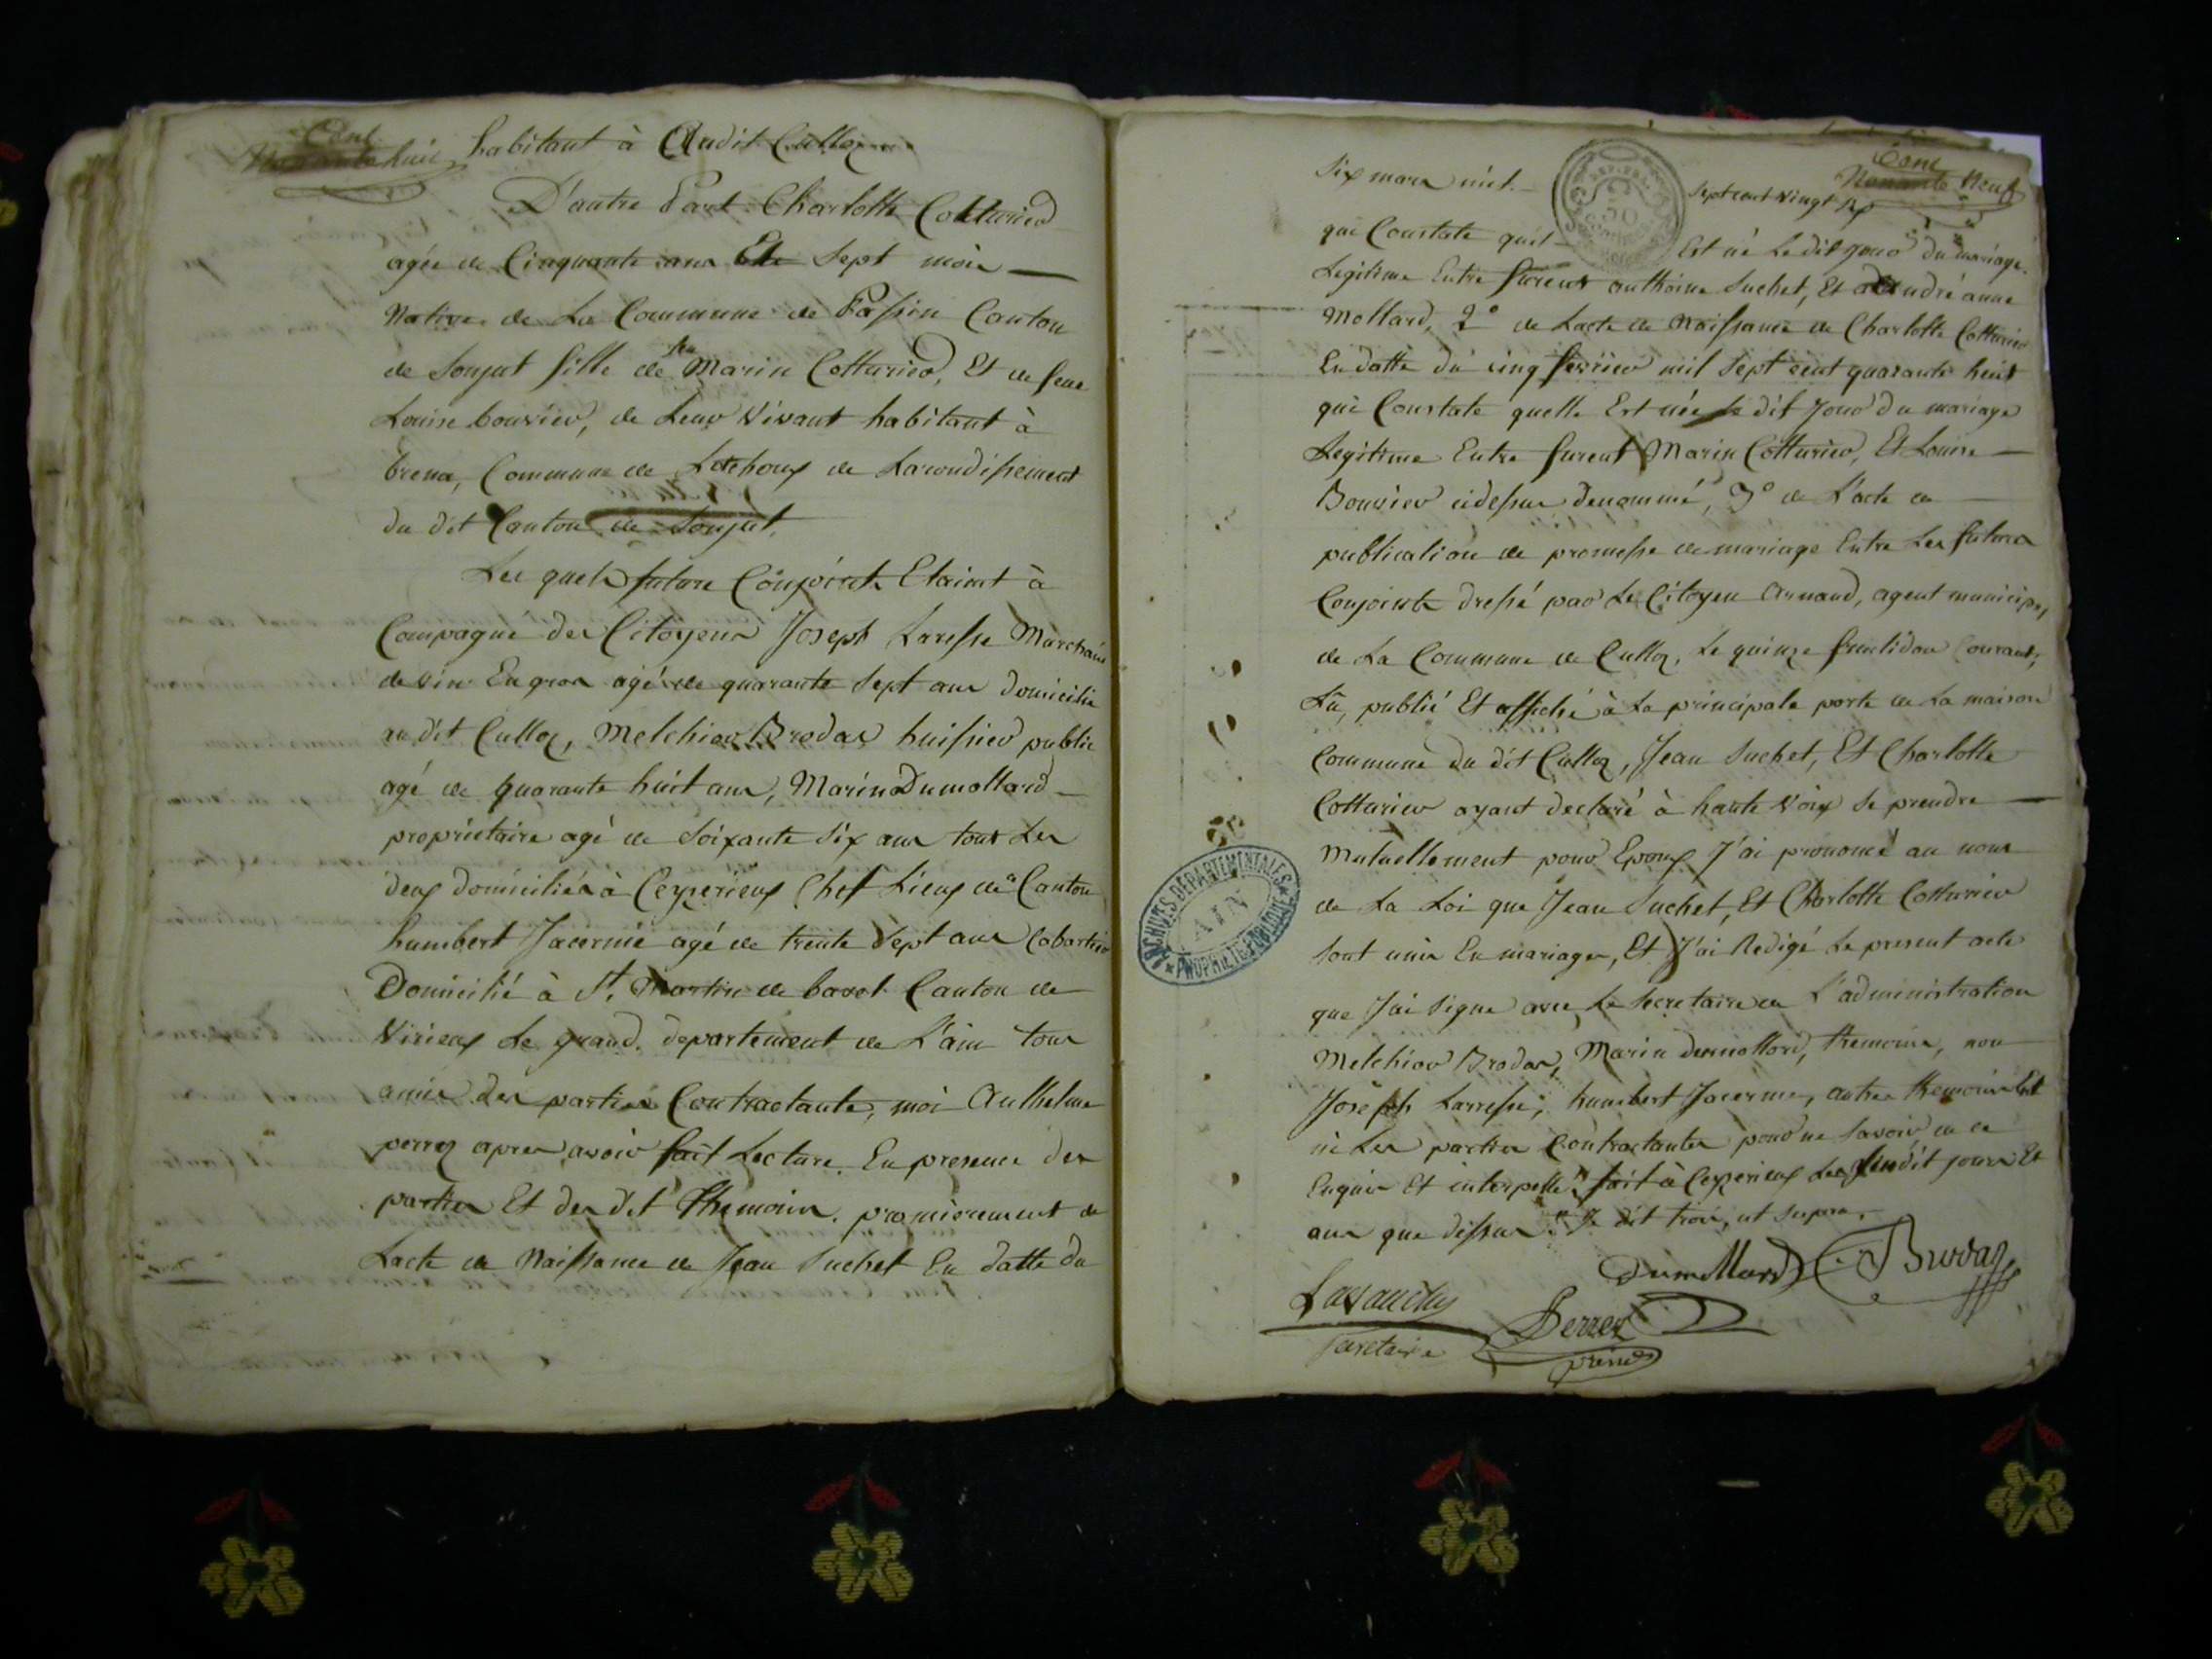 Cent
Nonante huit
habitant à Audit Culloz
D'autre Part Charlotte Cotturier
agée de Cinquante ans Et Sept mois
Native de La Commune de Passin Canton
de Sonjut fille de feu Marin Cotturier, Et de feue
Louise bouvier, de Leur Vivant habitant à
brena, Commune de Lachoux de Larondissement
du dit Canton de Sonjut.
Les quels future Conjoints Etaient à
Compagné des Citoyens Joseph Laresse Marchand
de vin En gros agé de quarante Sept ans domicilié
au dit Culloz, Melchior Brodas huissier public
agé de quarante huit ans, Marin Dumollard
propriétaire agé de Soixante Six ans tous Les
deux domiciliés à Ceyzerieux Chef Lieux de Canton
humbert Jacernie agé de trente Sept ans Cabartier
Domicilié à St. Martin de bavol Canton de
Virieux Le grand, departement de L'ain tous
amis des parties Contractante, moi Anthelme
perroz apres avoir fait Lecture En presence des
parties Et des dit themoins. premierement de
Lacte de Naissance de Jean Suchet En datte du
Cent
Nonante Neuf
Six mars mil
Sept cent Vingt Six
REP. FRA.
50
Centimes
qui Constate quil Est né Ledit jour du mariage
Legitime Entre furent anthoine Suchet, Et andré anne
Mollard, 2° de Lacte de Naissance de Charlotte Cotturier
En datte du cinq fevrier mil Sept cent quarante huit
qui Constate quelle Est née le dit Jour du mariage
Legitime Entre furent Marin Cotturier, Et Louise
Bouvier cidessus denommé, 3° de L'acte de
publication de promesse de mariage Entre Les futurs
Conjoints dressé par Le Citoyen Arnaud, agent municipal
de La Commune de Culloz, Le quinze fructidor Courant,
Lû, publié Et affiché à La principale porte de La maison
Commune du dit Culloz, Jean Suchet, Et Charlotte
Cotturier ayant declaré à haute Voix Se prendre
Mutuellement pour Epoux J'ai prononcé au nom
de La Loi que Jean Suchet, Et Charlotte Cotturier
Sont unis En mariage, Et J'ai Redigé Le present acte
que J'ai Signe avec Le Secretaire de L'administration
Melchior Brodas, Marin dumollard, themoins, non
Joseph Larresse, humbert Jacernie, autres themoins Et
ni Les parties Contractantes pour ne Savoir de ce
Enquis Et interpellé. fait à Ceyzerieux Les Susdit jours Et
ans que dessus. Le dit trois, ut Supra.
Dumollard
Brodas
Lavanchy
Secretaire
Perroz
présid
ARCHIVES DEPARTEMENTALES
AIN
PROPRIÉTÉ PUBLIQUE